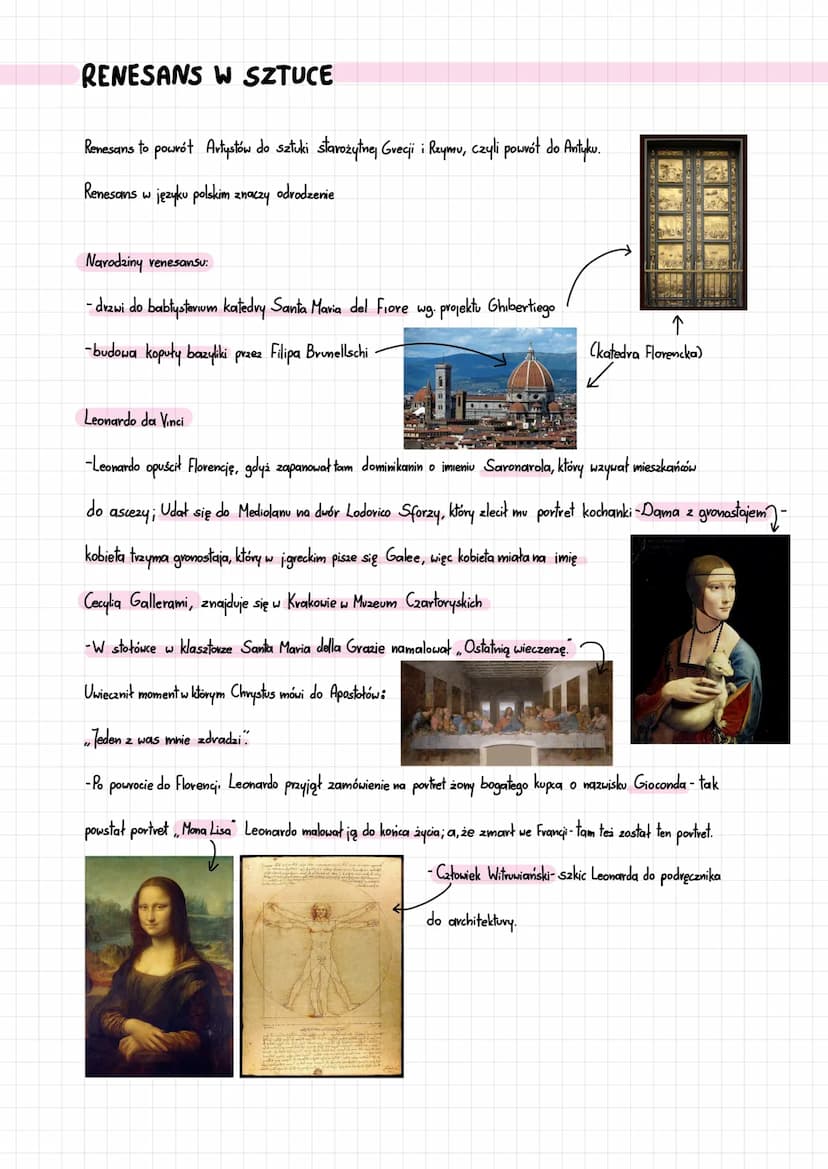 RENESANS W SZTUCE
Renesans to powrót Artystów do sztuki starożytnej Grecji i Rzymu, czyli powrót do Antyku.
Renesans w języku polskim znaczy odrodzenie
Narodziny renesansu:
- drzwi do babtysterium katedry Santa Maria del Fiore wg. projektu Ghibertiego
-budowa kopuły bazyliki przez Filipa Brunellschi
(katedra Florencka)
Leonardo da Vinci
-Leonardo opuścił Florencję, gdyż zapanował tam dominikanin o imieniu Savonarola, który wzywał mieszkańców
do ascezy; Udał się do Mediolanu na dwór Lodovico Sforzy, który zlecił mu portret kochanki -Dama z gronostajem -
kobieta trzyma gronostaja, który w j.greckim pisze się Galee, więc kobieta miała na imię
Cecylia Gallerami, znajduje się w Krakowie w Muzeum Czartoryskich
-W stołówce w klasztorze Santa Maria della Grazie namalował „Ostatnią wieczerzę."
Uwiecznił moment w którym Chrystus mówi do Apostołów:
„Jeden z was mnie zdradzi".
-Po powrocie do Florencji Leonardo przyjął zamówienie na portret żony bogatego kupca o nazwisku Gioconda - tak
powstał portret „Mona Lisa" Leonardo malował ją do końca życia; a, że zmarł we Francji - tam też został ten portret.
- Człowiek Witruwiański- szkic Leonarda do podręcznika
do architektury.